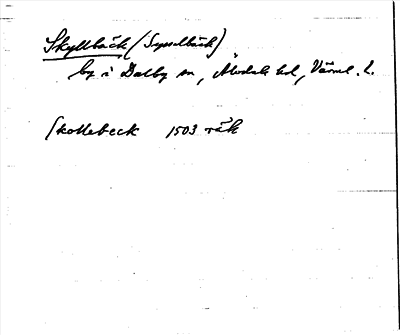 Skyllbäck (Sysselbäck)
by i Dalby sn, Älvdals hd, Värml. l.
Skottebeck 1503 räk